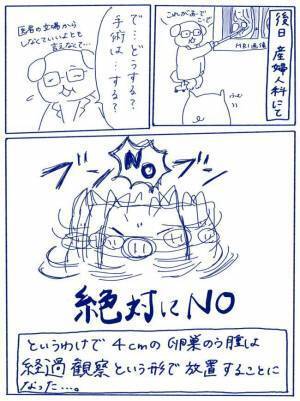 後日
産婦人科にて
これがあーで
こーで
MRI画像
で…どうする？
手術は…する？
医者の立場から
しなくていいよとも
言えなくて…
ブン
NO
ブン
絶対にNO
というわけで4cmの卵巣のう腫は
経過観察という形で放置することに
なった…。